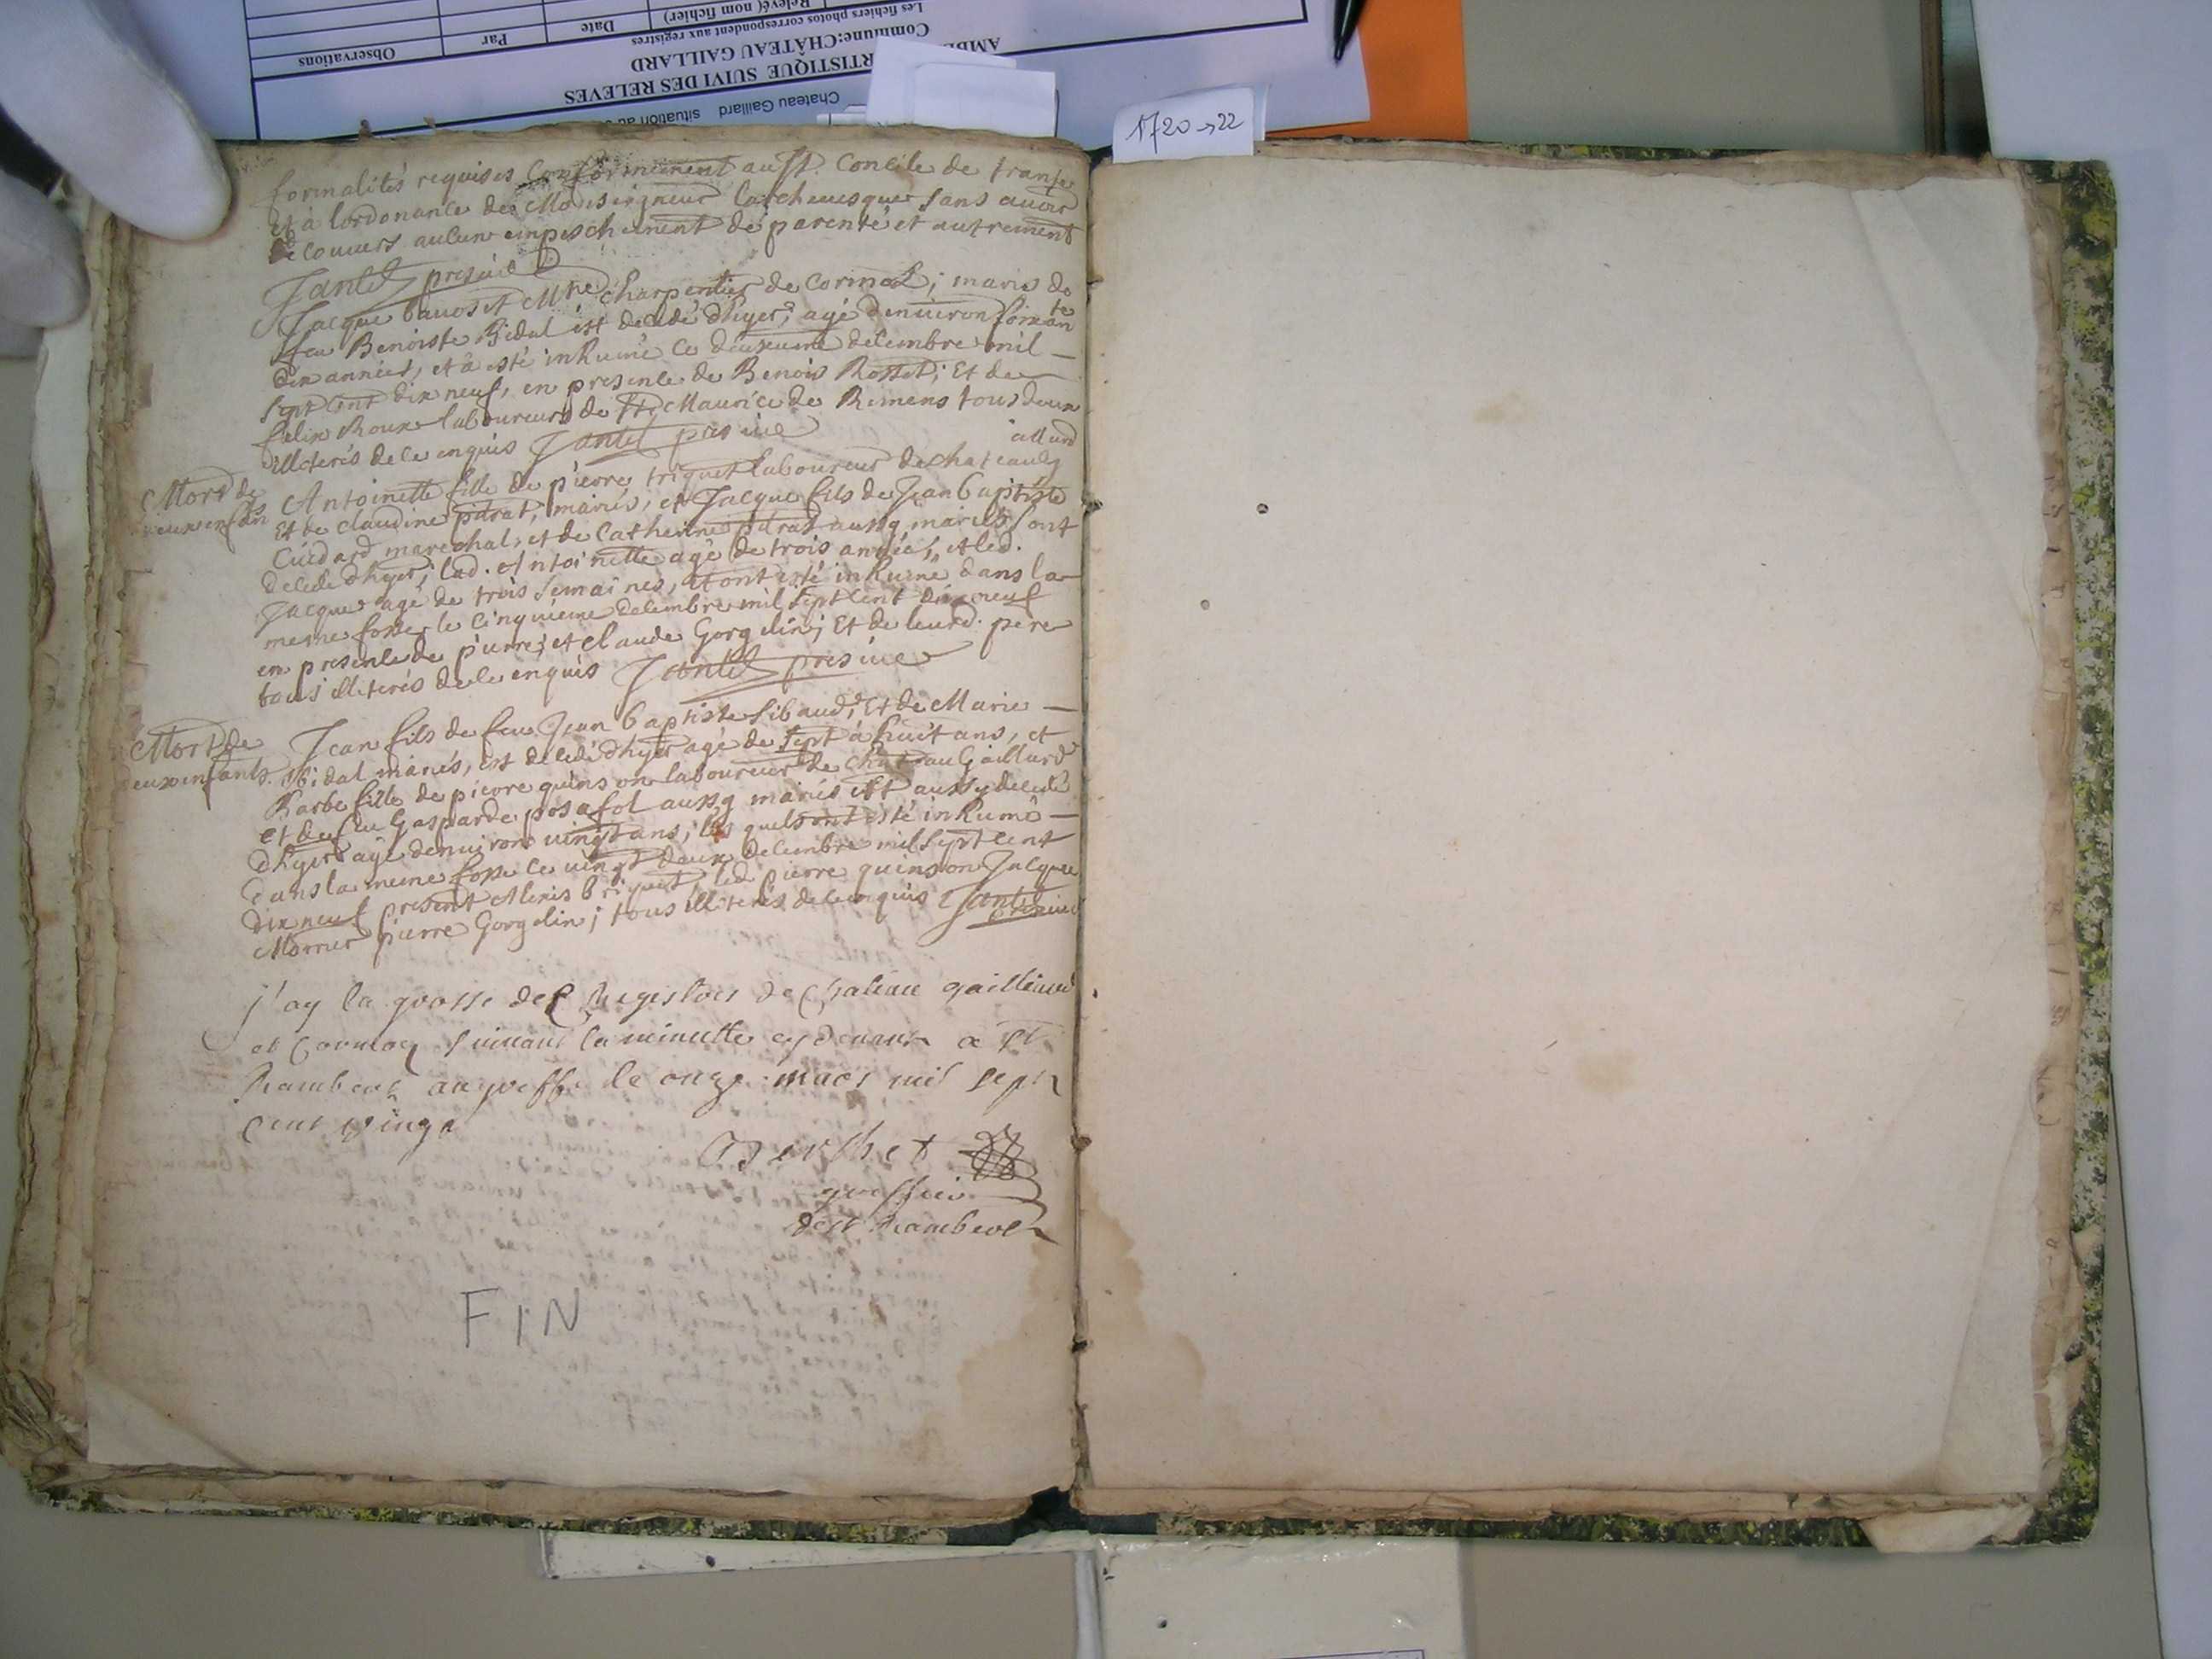 Observations
Par
Date
Relevé( nom fichier)
Les fichiers photos correspondent aux registres
Commune:CHÂTEAU GAILLARD
RTISTIQUE SUIVI DES RELEVES
Chateau Gaillard situation au
1720→22
formalités requises Conformement au St. Concile de trante
et a lordonance de Monseigneur larchevesque sans avoir
decouvers aucun empeschement de parenté et autrement
Jantet presvice
Jacque bavoset Mtre charpentier de Cormoz; maris de
feu Benoiste Bidal est decedé d'hyer, agé denviron soixante
dix années, et a esté inhumé ce deuxeume decembre mil
sept cent dix neuf, en presence de Benois Rosset; Et de
felix Roux laboureurs de St Maurice de Rimens tous deux
illiterés de ce enquis Jantet presvice
Mort de deux enfans
Antoinette fille de pierre triquet laboureur de chateaug
aillard
Et de claudine pitrat, mariés, et Jacque fils de Jean baptiste
Cuidard marechal, et de Catherine pitrat aussy mariés sont
decedé d'hyer; lad. Antoinette agé de trois années, et led.
Jacque agé de trois semaines, et ont esté inhumé dans la
mesme fosse le cinquieme decembre mil sept cent dix neuf
en presence de pierre et claude Gorgelin; Et de leurd. pere
tous illiterés de ce enquis Jantet presvice
Mort de deux enfants
Jean fils de feu Jean baptiste sibaud, Et de Marie
Bidal mariés, est decedé d'hyer agé de sept à huit ans, et
Barbe fille de pierre quinson laboureur de chateau Gaillard
et de feu Gasparde posafol aussy mariés est aussy decedé
d'hyer agé denviron vingt ans; les quels ont esté inhumé
dans la meme fosse ce vingt deux decembre mil sept cent
dix neuf present Alexis briquet, led. pierre quinson Jacque
Mornier pierre Gorgelin; tous illiterés de ce enquis Jantet presvice
j'ay la grosse des Registres de Chateau gaillard
et Cormoz suivant la minutte cy devant a St
Rambert au greffe le onze mars mil sept
cent vingt
Berthet
greffier
de St Rambert
FIN